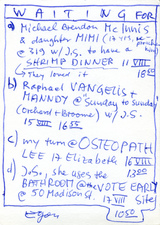 WAITING FOR
a) Michael Brendan McInnis
& daughter MIMI (17 yrs,
@ 319 w/ J.S. to have a
SHRIMP DINNER 11 VIII
→ They loved it 18⁰⁰
b) Raphael VANGELIS +
MANNDY @ Sunday to Sunday
(Orchard + Broome) w/ J.S.
15 VIII 16⁵⁵
c) my turn @ OSTEOPATH
LEE 17 Elizabeth 16 VIII
13⁰⁰
d) J.S., she uses the
BATHROOM @ VOTE EARLY
@ 50 Madison St. 17 VIII Site
10⁵⁰